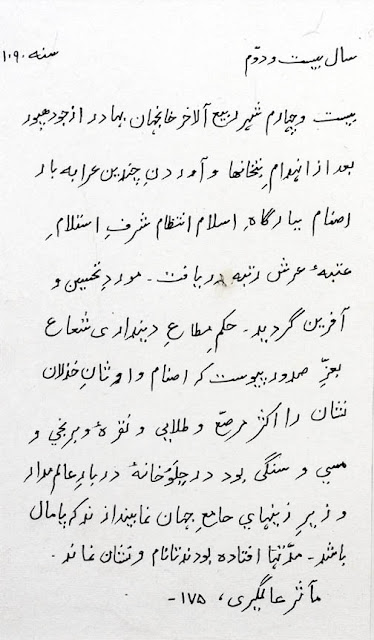 سال بیست و دوّم سنه ۱۰۹۰
بیست و چهارم شهر ربیع الآخر خانجهان بهادر از جودهپور
بعد از انهدامِ بتخانها و آوردنِ چندین عرابه بار
اصنام ببارگاهِ اسلام انتظام شرفِ استلامِ
عتبهٔ عرش رتبه دریافت - موردِ تحسین و
آفرین گردید - حکمِ مطاعِ دینداری شعاع
بعزِّ صدور پیوست که اصنام و اوثانِ خذلان
نشان را اکثر مرصّع و طلایی و نقرهٔ و برنجی و
مسی و سنگی بود در جلوخانهٔ دربارِ عالم مدار
و زیرِ زینهای جامعِ جهان نما بیندازند که پامال
باشد - مدّتها افتاده بودند تا نام و نشان نماند -
مآثرِ عالمگیری، ۱۷۵ -